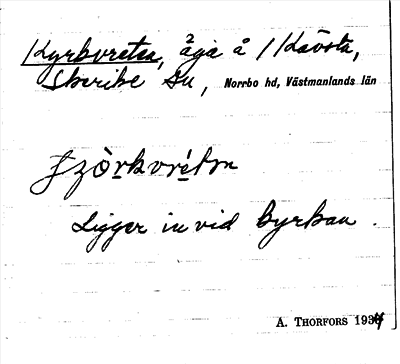 Kyrkvreten, äga å /Kävsta,
Skerike sn, Norrbo hd, Västmanlands län
Ligger in vid kyrkan.
A. THORFORS 1934